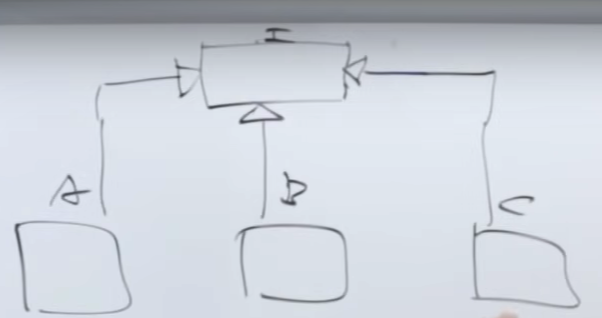 I
A
B
C